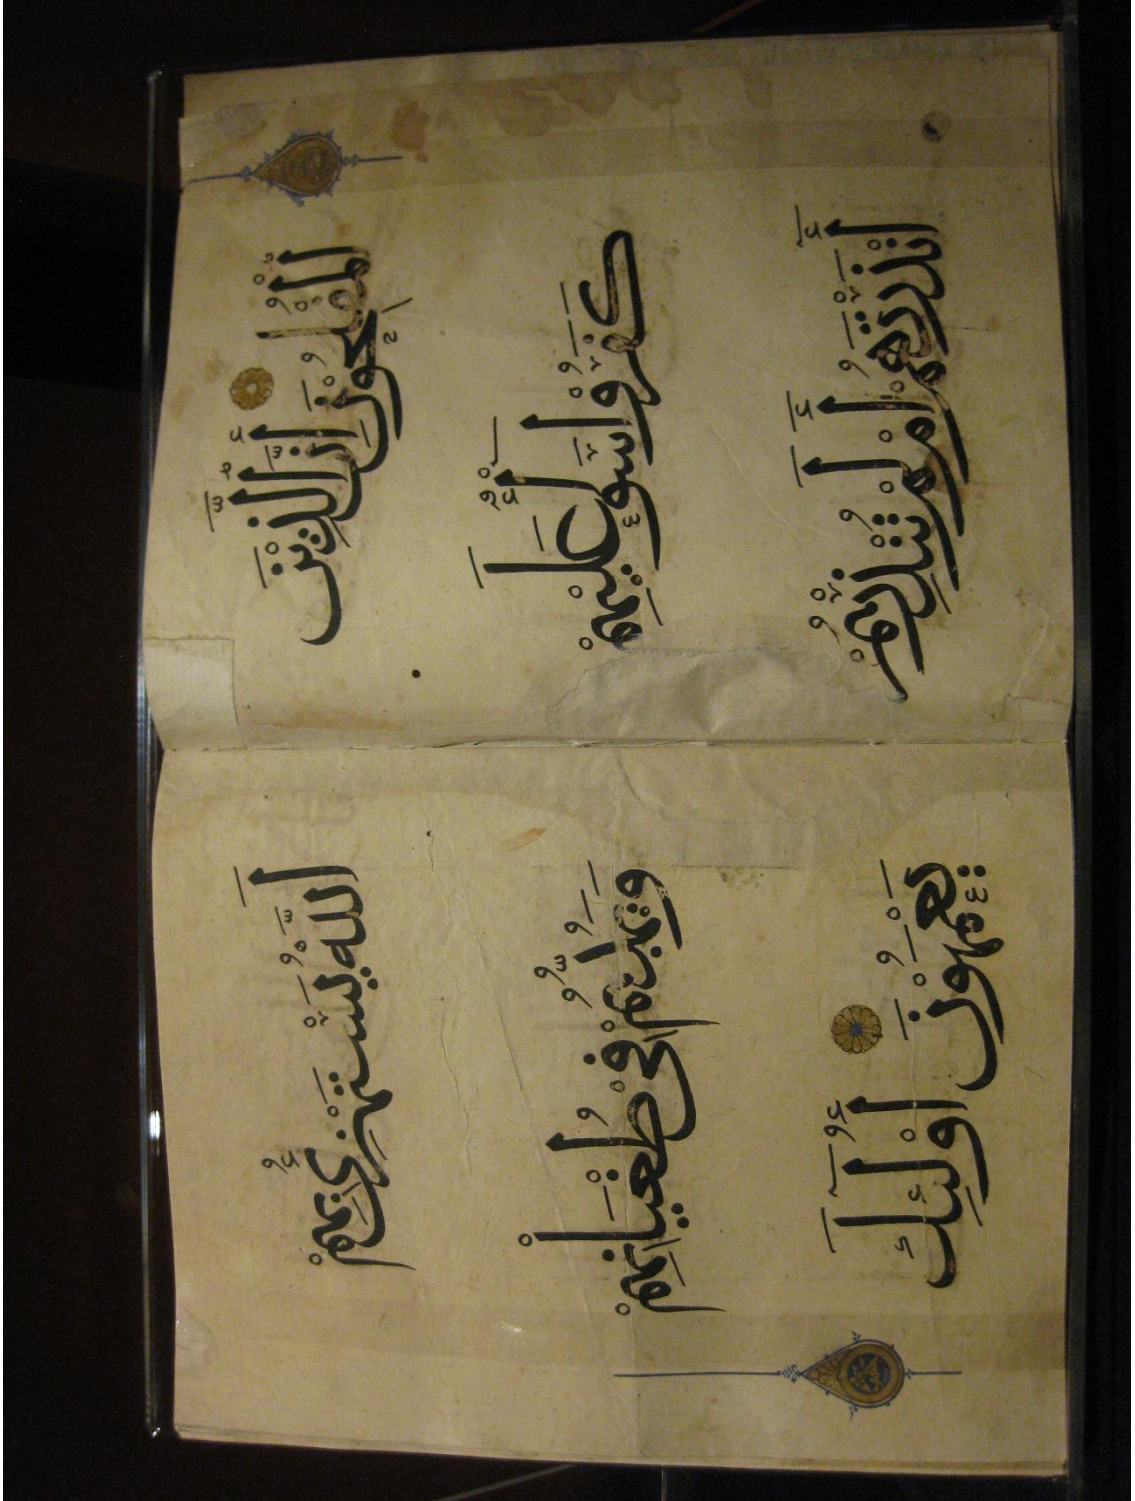 اَلْمُفْلِحُوْنَ إِنَّ الَّذِيْنَ
كَفَرُوْا سَوَآءٌ عَلَيْهِمْ
ءَأَنْذَرْتَهُمْ أَمْ لَمْ تُنْذِرْهُمْ
اَللّٰهُ يَسْتَهْزِئُ بِهِمْ
وَيَمُدُّهُمْ فِيْ طُغْيَانِهِمْ
يَعْمَهُوْنَ أُوْلٰٓئِكَ